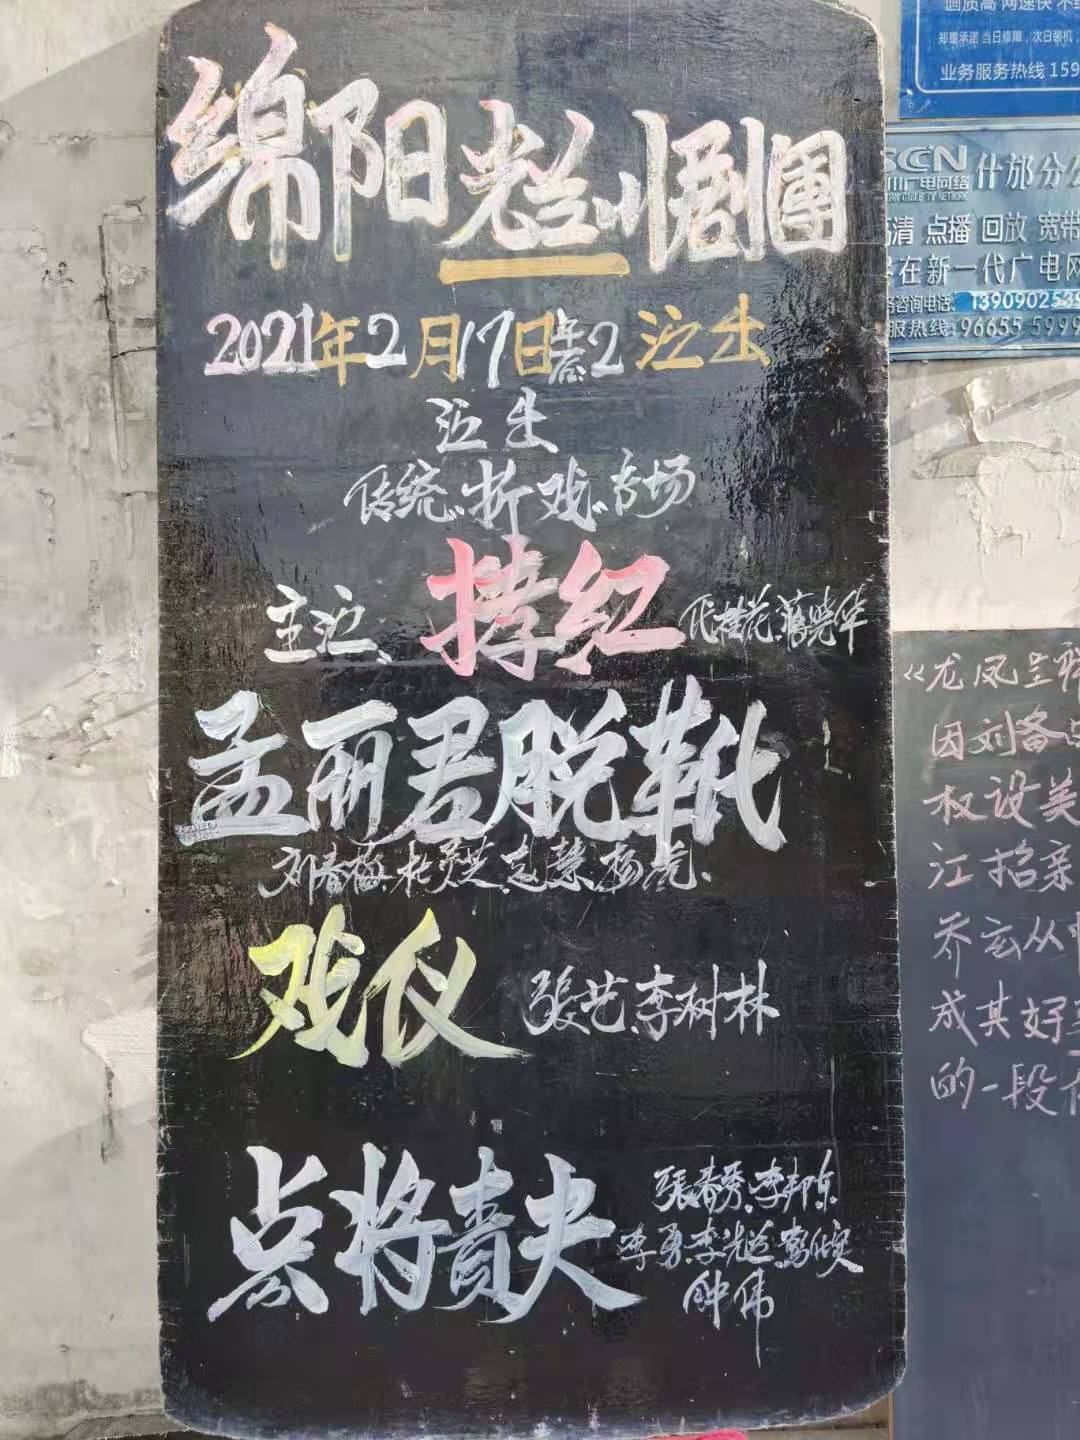 绵阳光兰川剧團
2021年2月17日 2 演出
演出
传统折戏专场
主演、拷红
代桂花、蒋晓华
孟丽君脱靴
刘春梅、杜灵芝、志慧、杨虎、
戏仪
張艺、李树林
点将责夫
張春秀、李邦东
李勇、李光远、彭欣
钟伟
画质高 网速快
郑重承诺 当日修障,次日装机,
业务服务热线 159
SCCN
什邡分公
川广电网络
CABLE TV NETWORK
高清 点播 回放 宽带
在新一代广电网
务咨询电话:1390902539
服热线:96655 5999
《龙凤呈祥
因刘备
权设美
江招亲
乔玄从
成其好事
的一段